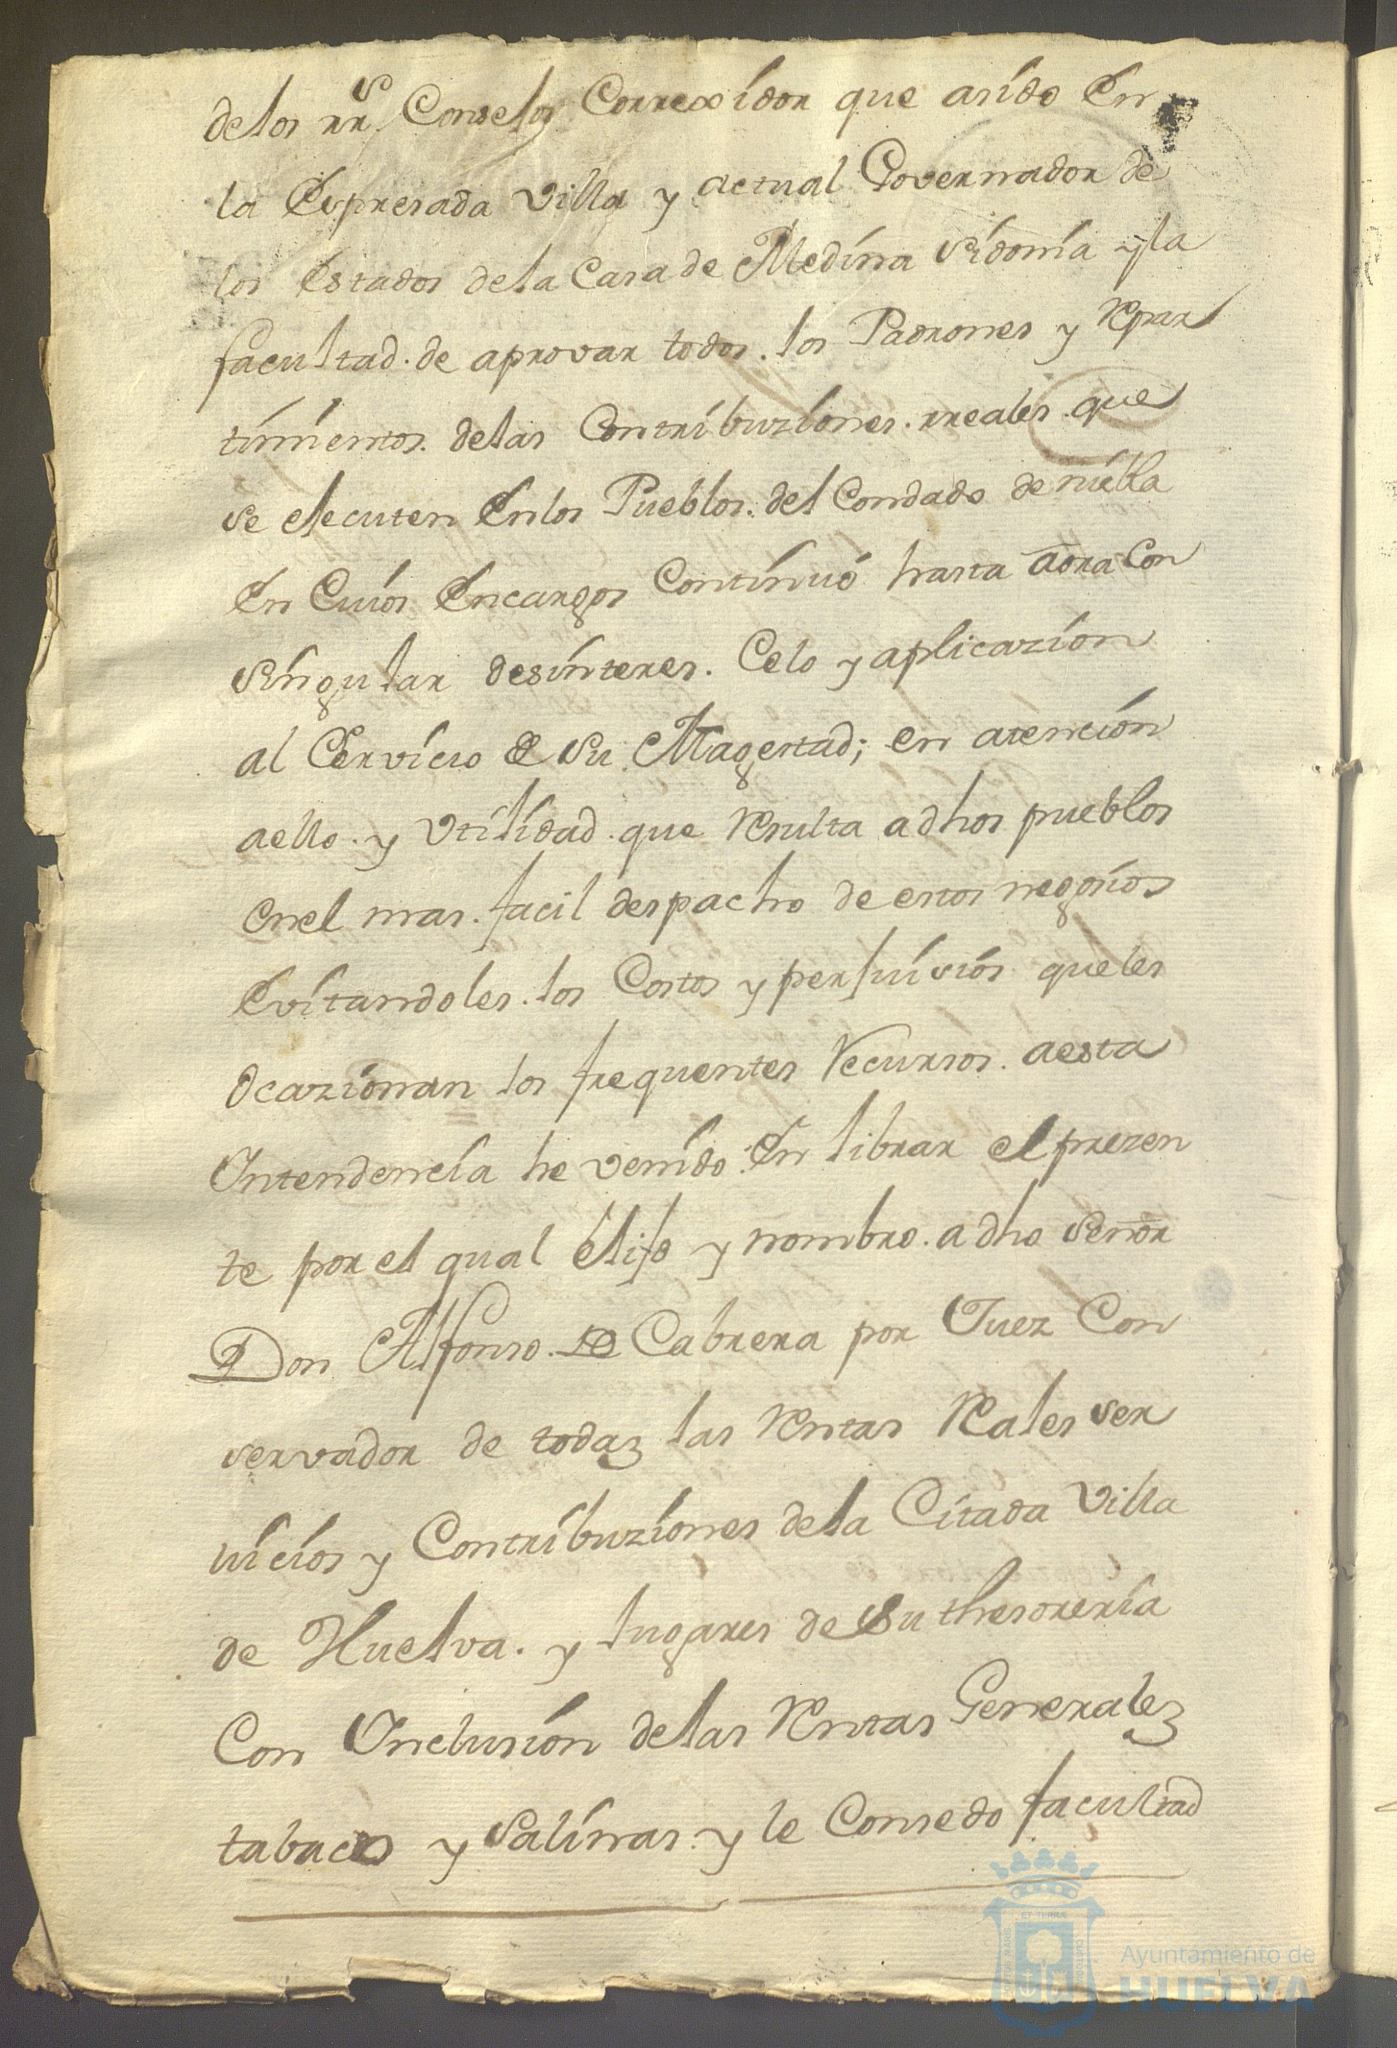 delos rrs Conselos Correxidor que asido En
la Expresada Villa y actual Governador de
los Estados dela Casa de Medina Sidonia y la
facultad de aprovar todos los Padrones y Repar
timientos delas Contribuziones rreales que
se elecuten Enlos Pueblos del Condado de niebla
En Cuios Encargos Continuó hasta aora Con
Singular desinteres. Celo y aplicazion
al Cervicio de Su Magestad; en atencion
aello y Utilidad que Resulta adhos pueblos
enel mas facil despacho de estos negozios
Evitandoles los Costos y perjuivios queles
Ocazionan los frequentes Recursos aesta
Intendencia he venido En librar el prezen
te por el qual elijo y nombro adho Señor
Don Alfonso de Cabrera por Juez Con
servador de todaz las Rentas Reales ser
vicios y Contribuziones dela Citada Villa
de Huelva. y lugares de Su thesoreria
Con Inclusion delas Rentas Generalez
tabacos y Salinas y le Consedo facultad
Ayuntamiento de
HUELVA